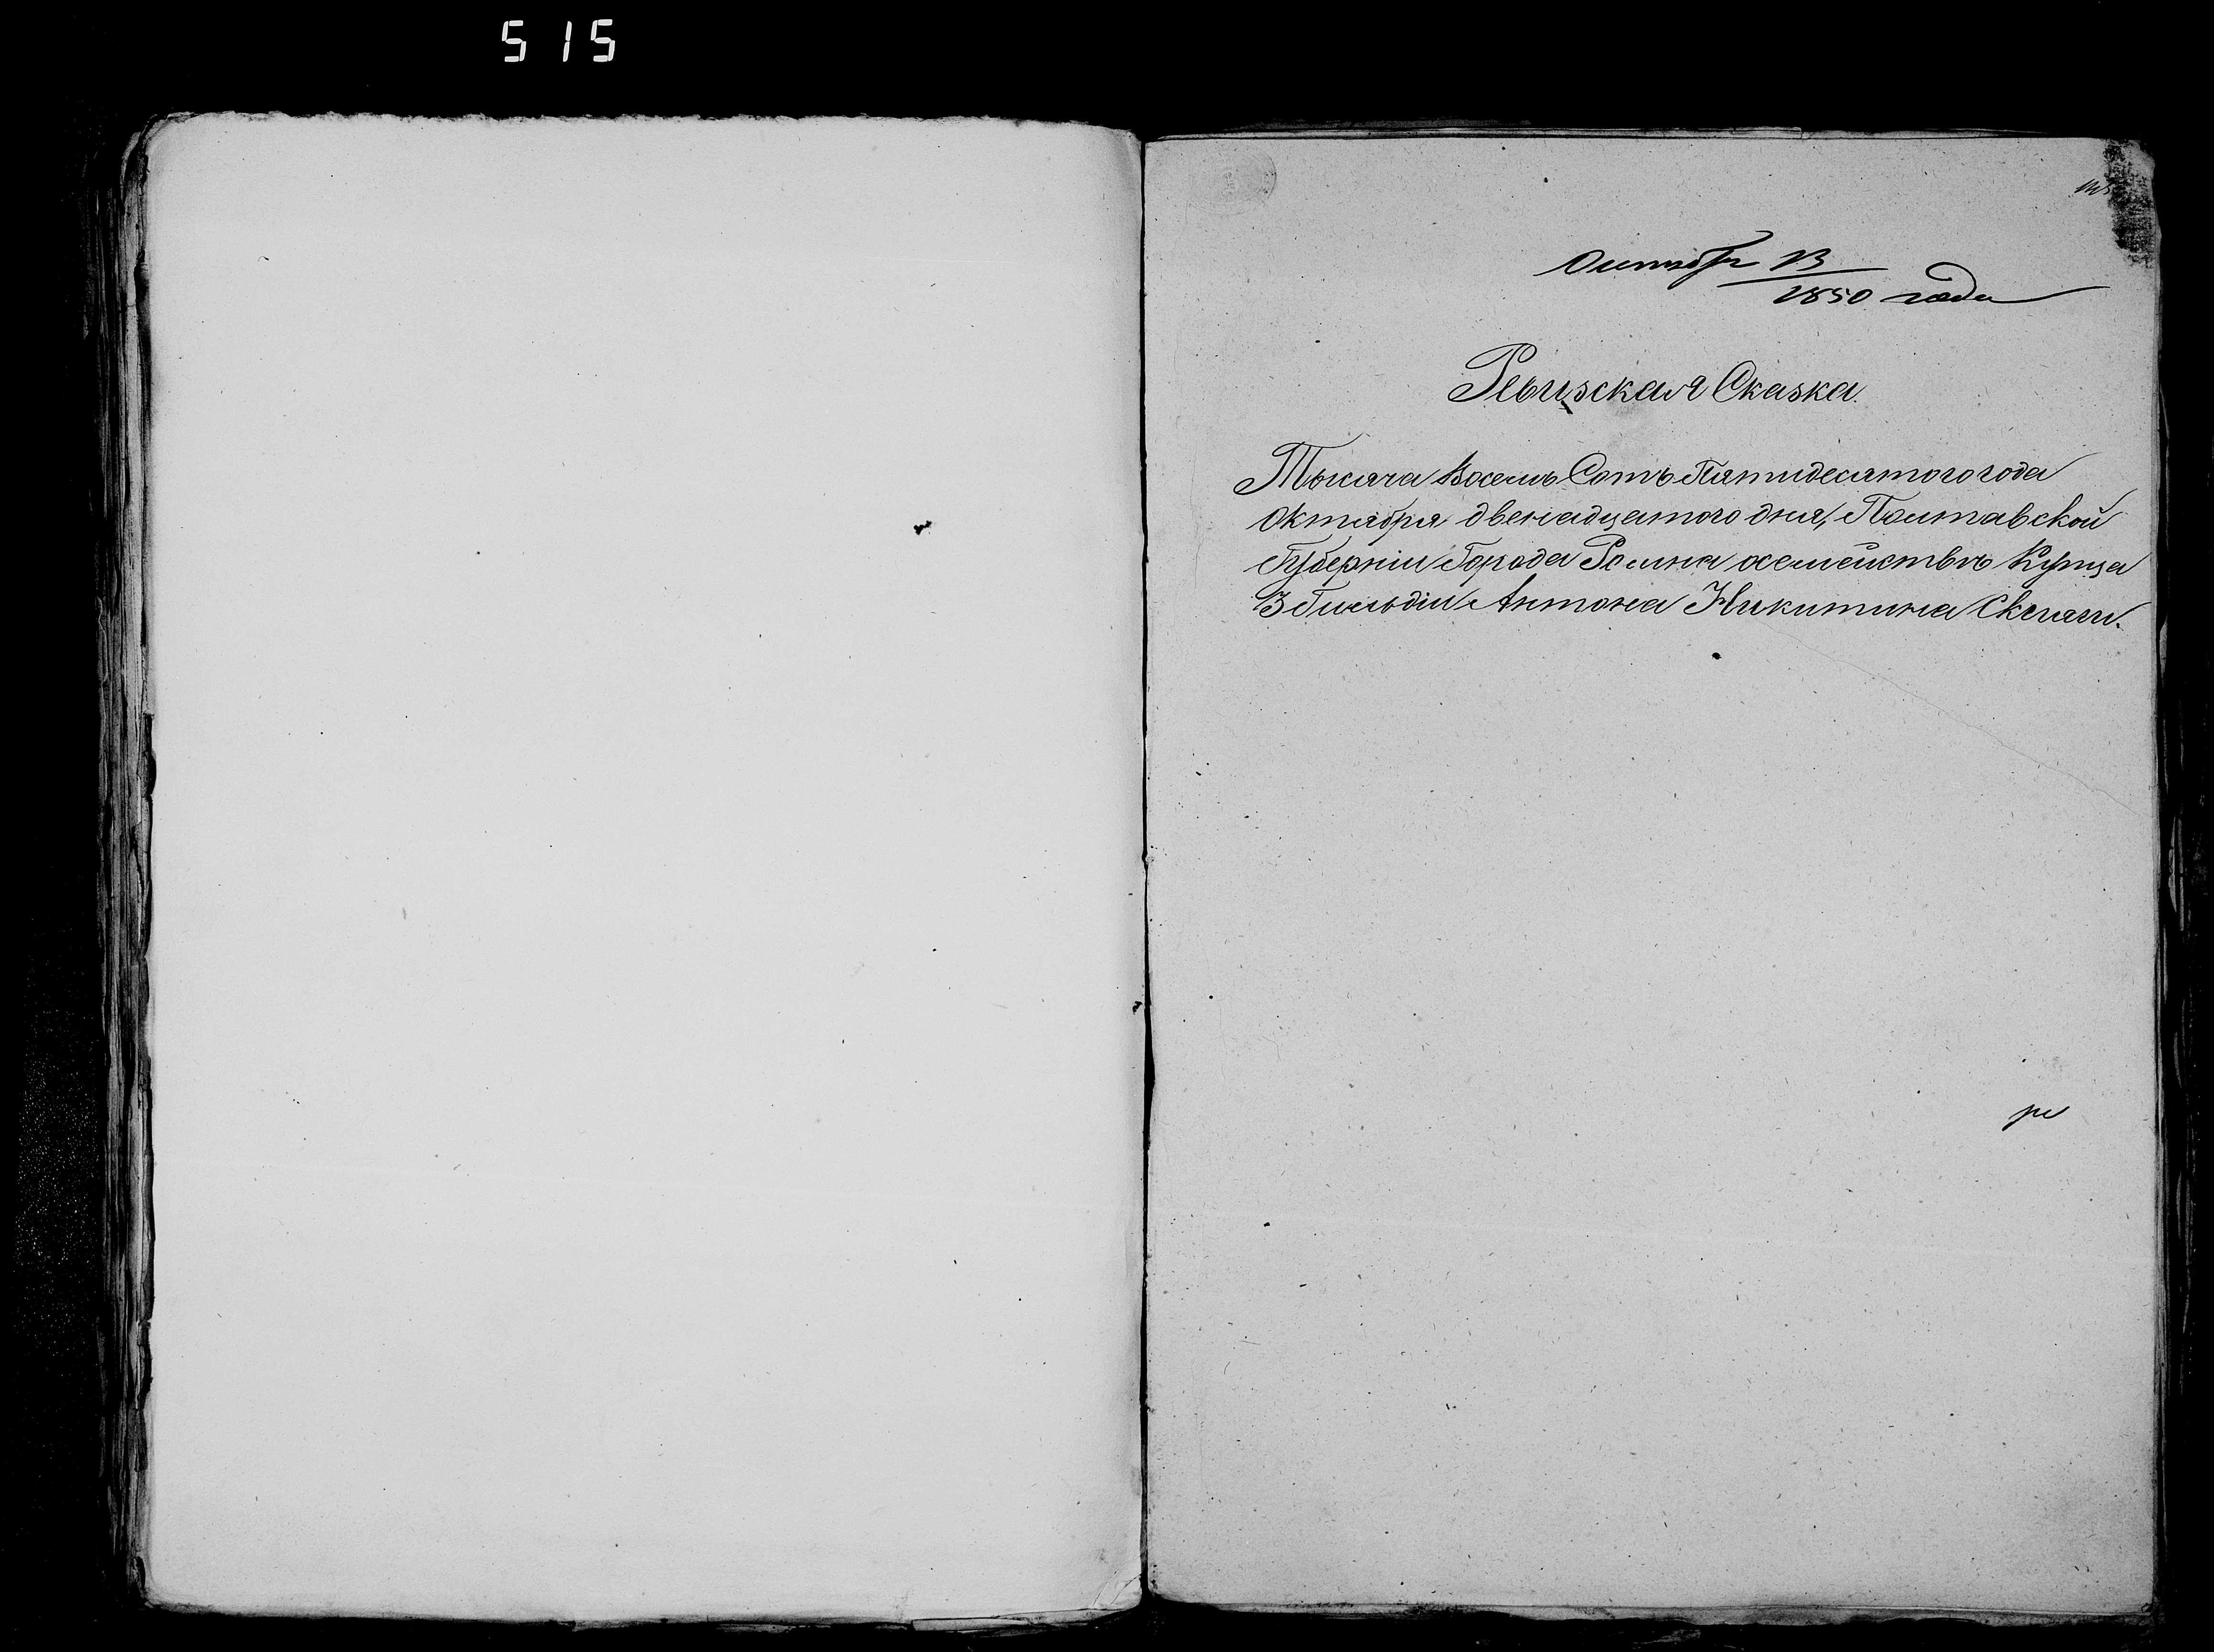 515
Октября 13
1850 года
Ревизская Сказка.
Тысяча Восемь Сотъ Пятидесятого года
Октября двенадцатого дня, Полтавской
Губерніи Города Ромна осемействѣ Купца
3 Гильдіи Антона Никитина